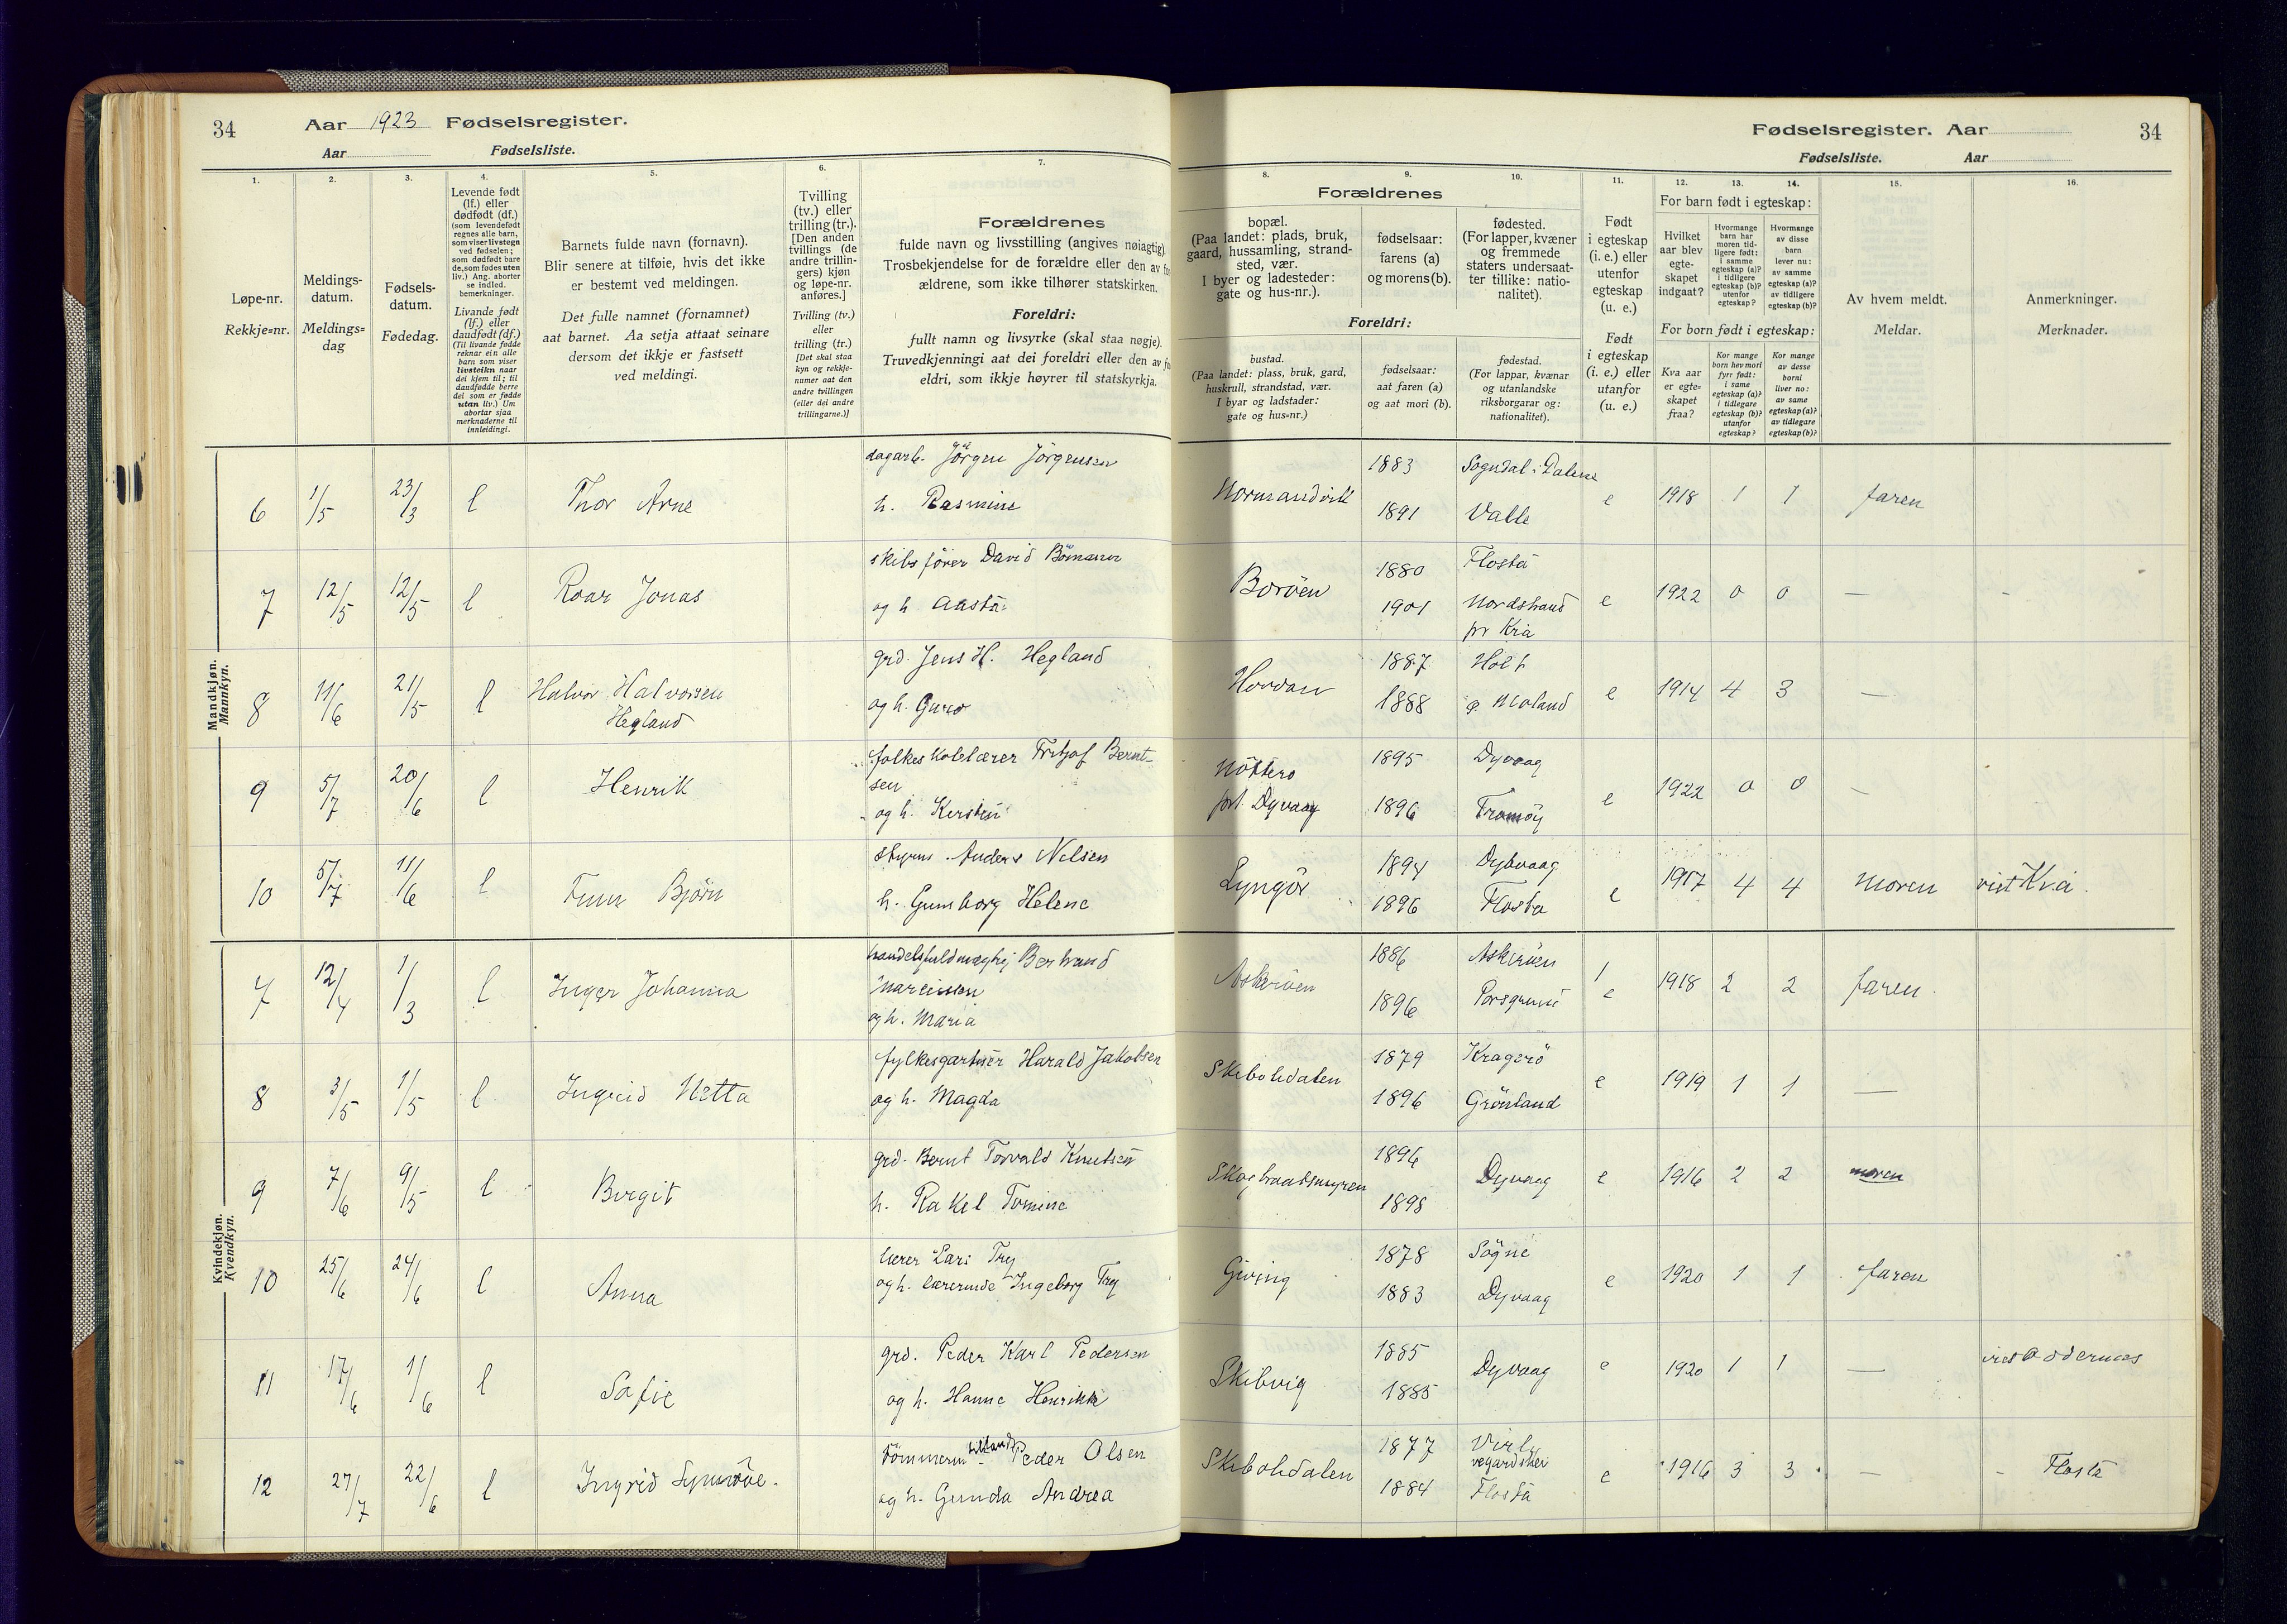 34 Aar 1923 Fødselsregister.
Aar Fødselsliste.
Fødselsregister. Aar 34
Fødselsliste. Aar
1. 2. 3. 4. 5. 6. 7.
Løpe-nr.
Rekkje=nr.
Meldings-
datum.
Meldings=
dag
Fødsels-
datum.
Fødedag.
Levende født
(lf.) eller
dødfødt (df.)
(som levendefødt
regnes alle barn,
som viser livstegn
ved fødselen;
som dødfødt bare
de, som fødes uten
liv.) Ang. aborter
se indled.
bemerkninger.
Livande født
(lf.) eller
daudfødt (df.)
(Til livande fødde
reknar ein alle
barn som viser
livsteikn naar
dei kjem til; til
daudfødde berre
dei som er fødde
utan liv.) Um
abortar sjaa
merknaderne til
innleidingi.
Barnets fulde navn (fornavn).
Blir senere at tilføie, hvis det ikke
er bestemt ved meldingen.
Det fulle namnet (fornamnet)
aat barnet. Aa setja attaat seinare
dersom det ikkje er fastsett
ved meldingi.
Tvilling
(tv.) eller
trilling (tr.).
[Den anden
tvillings (de
andre trillin-
gers) kjøn
og løpe-nr.
anføres.]
Tvilling (tv.)
eller
trilling (tr.)
[Det skal staa
kyn og rekkje-
numer aat den
andre tvillingen
(eller dei andre
trillingarne.)]
Forældrenes
fulde navn og livsstilling (angives nøiagtig).
Trosbekjendelse for de forældre eller den av for-
ældrene, som ikke tilhører statskirken.
Foreldri:
fullt namn og livsyrke (skal staa nøgje).
Truvedkjenningi aat dei foreldri eller den av
eldri, som ikkje høyrer til statskyrkja.
8. 9. 10. 11. 12. 13. 14. 15. 16.
Forældrenes
bopæl.
(Paa landet: plads, bruk,
gaard, hussamling, strand-
sted, vær.
I byer og ladesteder:
gate og hus-nr.).
fødselsaar:
farens (a)
og morens (b).
fødested.
(For lapper, kvæner
og fremmede
staters undersaat-
ter tillike: natio-
nalitet).
Foreldri:
bustad.
(Paa landet: plass, bruk, gard,
huskrull, strandstad, vær.
I byar og ladstader:
gate og hus=nr.)
fødselsaar:
aat faren (a)
og aat mori (b).
fødestad.
(For lappar, kvænar
og utanlandske
riksborgarar og:
nationalitet).
Født
i egteskap
(i. e.) eller
utenfor
egteskap
(u. e.)
Født
i egteskap
(i. e.) eller
utanfor
(u. e.)
For barn født i egteskap:
Hvilket
aar blev
egte-
skapet
indgaat?
Hvormange
barn har
moren tid-
ligere født:
i samme
egteskap (a)?
i tidligere
egteskap (b)?
utenfor
egteskap?
Hvormange
av disse
barn
lever nu:
av samme
egteskap (a)?
av tidligere
egteskap (b)?
For born født i egteskap:
Kva aar
er egte=
skapet
fraa?
Kor mange
born hev mori
fyrr født:
i same
egteskap (a)?
i tidlegare
egteskap (b)?
utanfor
egteskap?
Kor mange
av desse
borni
liver no:
av same
egteskap (a)?
av tidlegare
egteskap (b)?
Av hvem meldt.
Meldar.
Anmerkninger.
Merknader.
Mandkjøn.
Mannkyn.
6 1/5 23/3 l Thor Arne dagarb. Jörgen Jörgensen
h. Rasmine
Normandvik 1883 Sogndal i Dalene
1891 Valle e 1918 1 1 faren
7 12/5 12/5 l Roar Jonas skibsfører David
og h Aasta
Boröen 1880 Flosta
1901 Nordstrand
pr Kria e 1922 0 0 —
8 11/6 21/5 l Halvor Halvorsen
Hegland
grd. Jens H. Hegland
og h. Guro
1887 Holt
1888 Moland e 1914 4 3 —
9 5/7 20/6 l Henrik folkeskolelærer Fritjof Bernt-
sen
og h. Kersten
Nötterö
Dyvaag 1895 Dyvaag
1896 Tromöy e 1922 0 0 —
10 5/7 11/6 l Finn Björn styrm. Anders Nelsen
h. Gunborg Helene
Lyngör 1894 Dybvaag
1896 Flosta e 1917 4 4 moren vist Kria.
Kvindekjøn.
Kvendkyn.
7 12/4 1/3 l Inger Johanna handelsfuldmægtig Bertrand
Marcussen
og h. Maria
Askeröen 1886 Askeröen
1896 Porsgrund e 1918 2 2 faren.
8 3/5 1/5 l Ingrid Netta fylkesgartner Harald Jakobsen
og h. Magda
Skibolidalen 1879 Kragerö
1896 Grönland e 1919 1 1 —
9 7/6 9/5 l Birgit grd. Bernt Torvald Knutsen
h. Rakel Tomine
1896
1898 Dyvaag e 1916 2 2 moren
10 25/6 24/6 l Anna lærer Lars Try
og h. lærerinde Ingeborg Try
Giving 1878 Sögne
1883 Dyvaag e 1920 1 1 faren
11 17/6 1/6 l Sofie grd. Peder Karl Pedersen
og h. Hanne Henrikke
Skibvig 1885
1885 Dyvaag e 1920 1 1 — vist Oddernes
12 27/7 22/6 l Ingrid Synnöve. Tömmerm Peder Olsen
og h. Gunda Andrea
Skibolidalen 1877
vegardshei
1884 Flosta e 1916 3 3 — Flosta